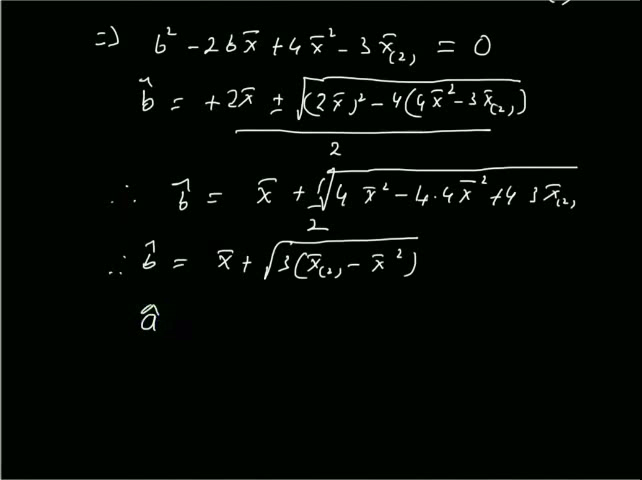 =) b² - 2b x̄ + 4 x̄² - 3 x̄₍₂₎ = 0
b̂ = + 2x̄ ± √((2x̄)² - 4(4x̄² - 3x̄₍₂₎)) / 2
∴ b̂ = x̄ + 1/2 √(4 x̄² - 4·4x̄² + 4 3 x̄₍₂₎)
∴ b̂ = x̄ + √(3(x̄₍₂₎ - x̄²))
â